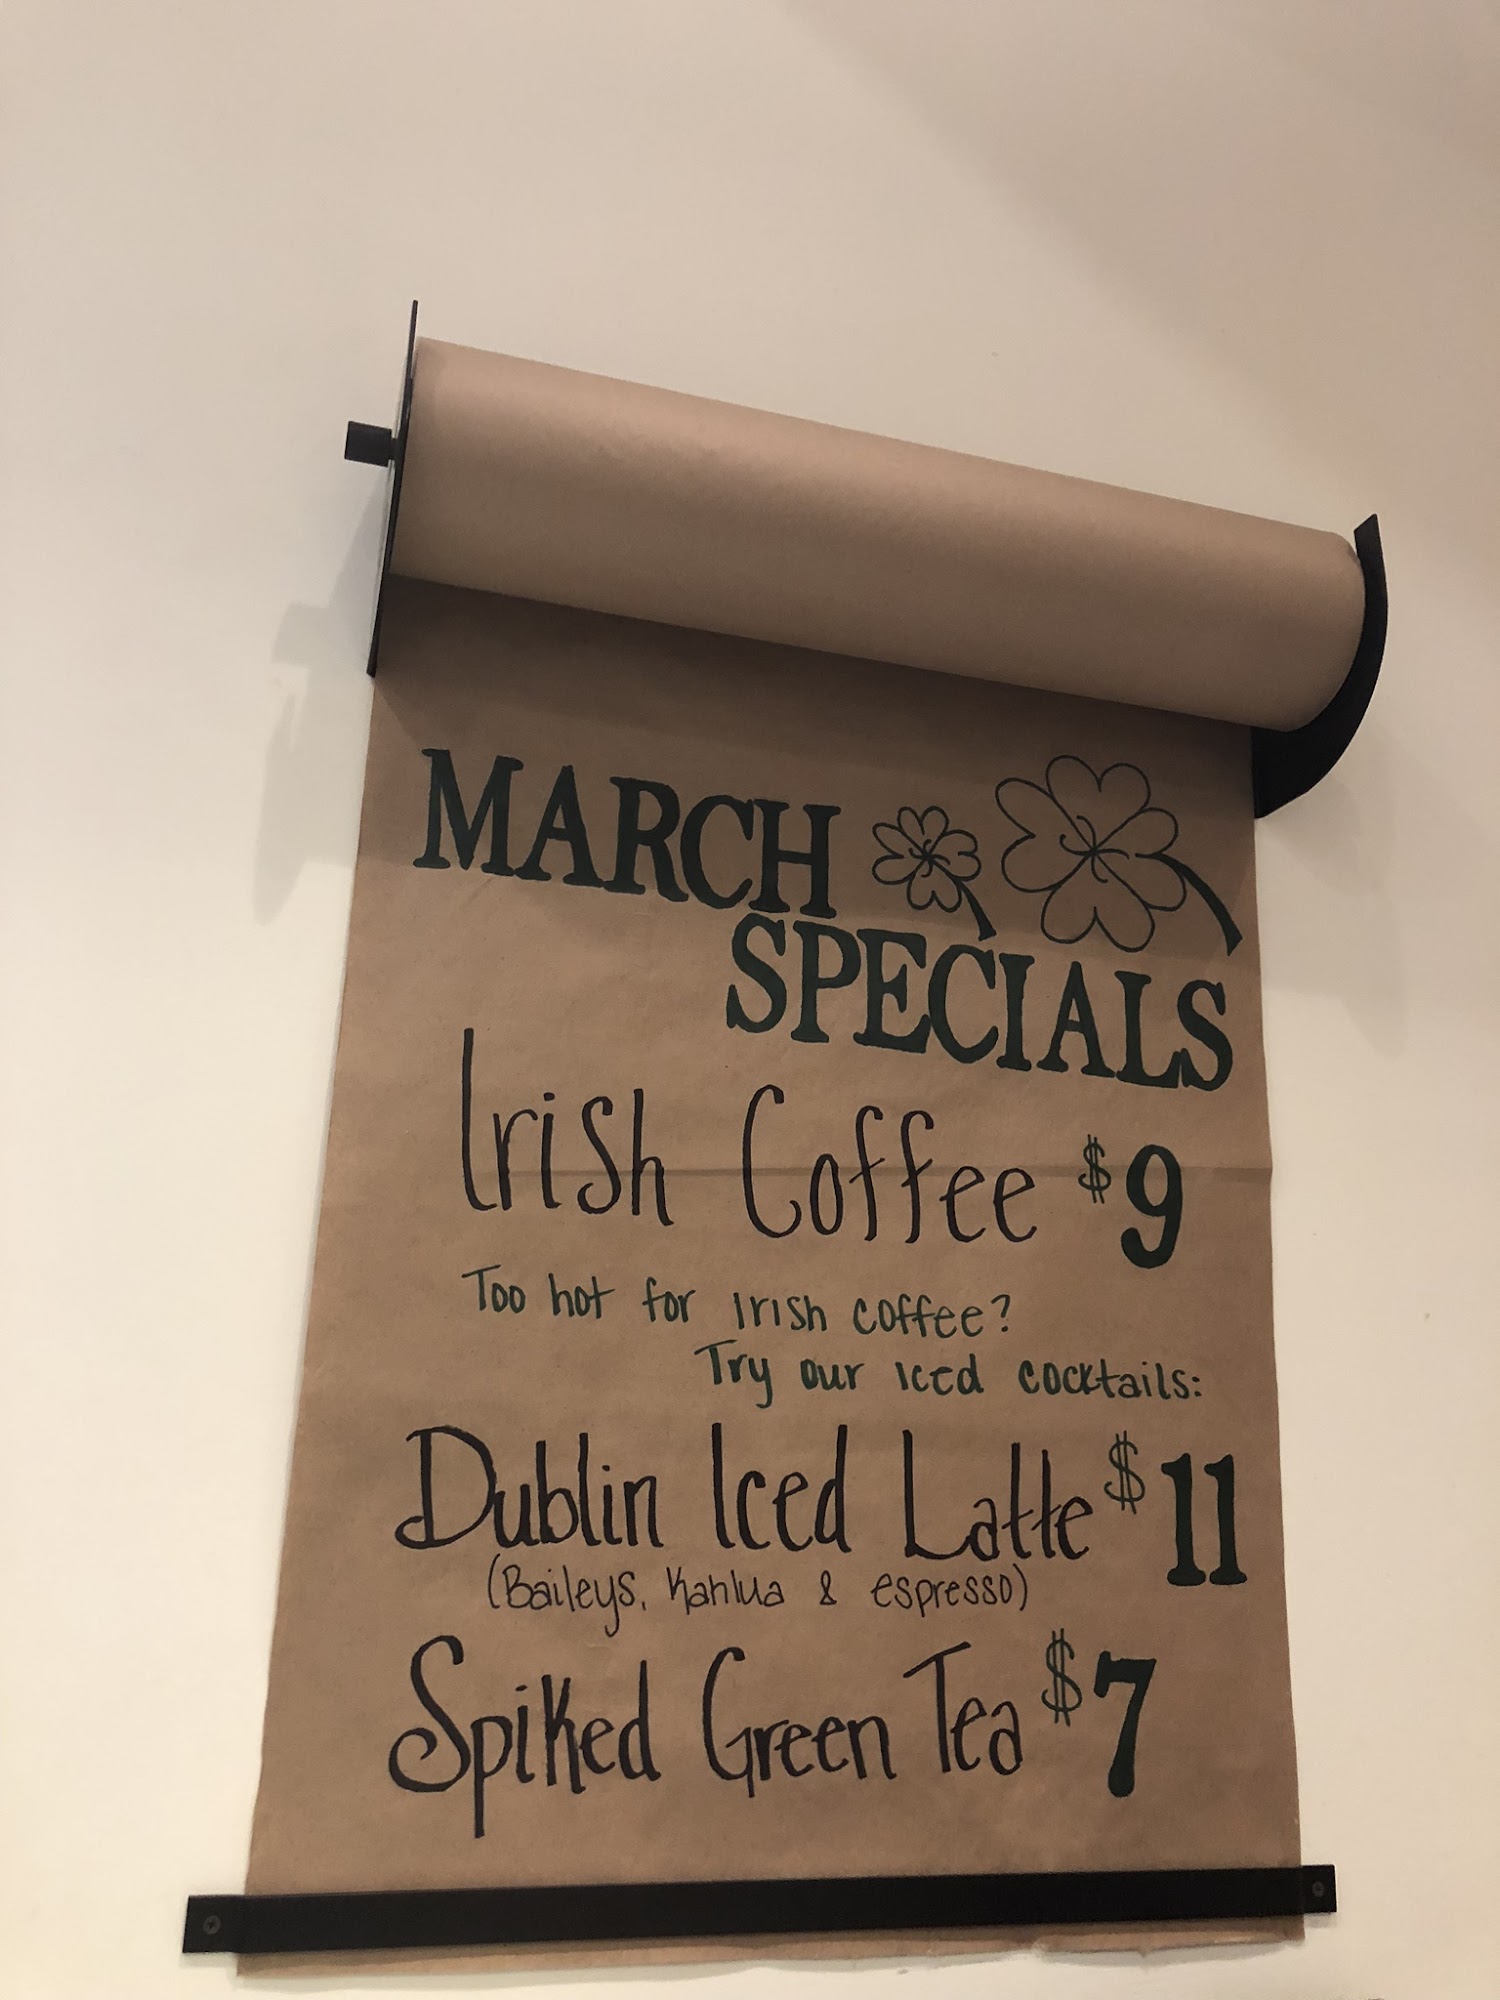 MARCH
SPECIALS
Irish Coffee $9
Too hot for Irish coffee?
Try our iced cocktails:
Dublin Iced Latte $11
(Baileys, Kahlua & espresso)
Spiked Green Tea $7